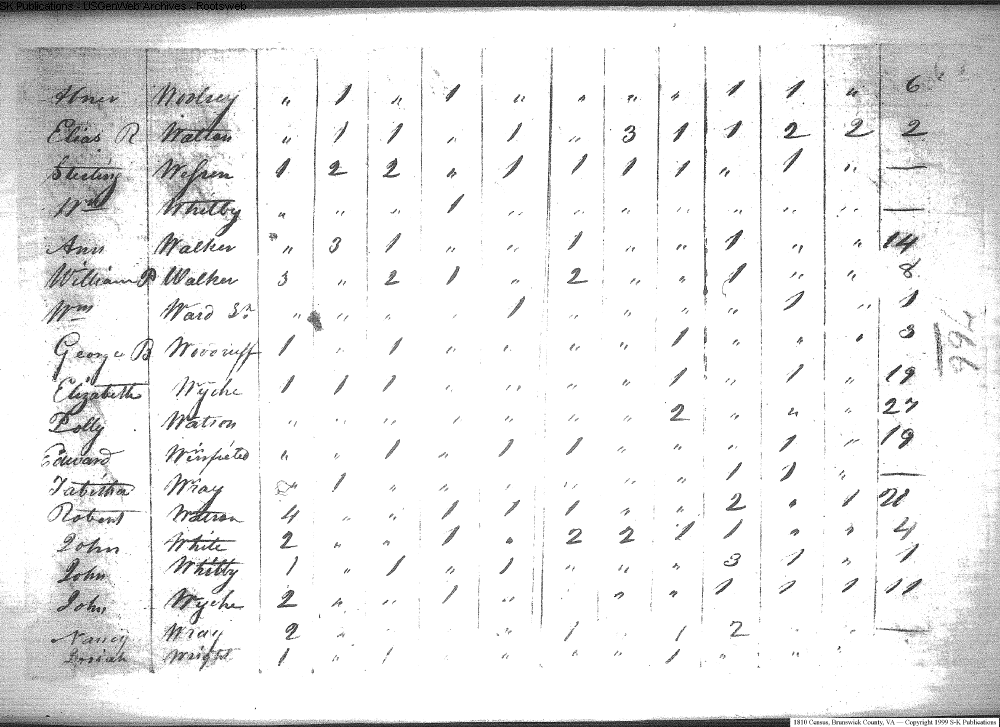 S-K Publications - USGenWeb Archives - Rootsweb
Abner Woolsey " 1 " 1 " " " " 1 1 " 6
Elias R Watson " 1 1 " 1 " 3 1 1 2 2 2
Sterling 1 2 2 " 1 1 1 1 " 1 " —
Wm Whitby " " " 1 " " " " " " " —
Ann Walker " 3 1 " " 1 " " 1 " " 14
William P Walker 3 " 2 1 " 2 " " 1 " " 8
Wm Ward Sr " " " " 1 " " " " 1 " 1
George B Woodruff 1 " 1 " " " " 1 " " " 3
Elizabeth Wyche 1 1 1 " " " " 1 " 1 " 19
Polly Watson " " " " " " " 2 " " " 27
Edward Winfield " " 1 " 1 1 " " " 1 " 19
Tabitha Wray " 1 " " " " " " 1 1 " —
Robert Watson 4 " " 1 1 1 " " 2 " 1
John White 2 " " 1 " 2 2 1 1 " " 4
John Whitby 1 " 1 " 1 " " " 3 1 " 1
John Wyche 2 " " 1 " " " 1 1 1 11
Nancy Wray 2 " " " 1 " 1 2 " " —
Josiah Wright 1 " 1 " " " " 1 " " "
994
1810 Census, Brunswick County, VA — Copyright 1999 S-K Publications